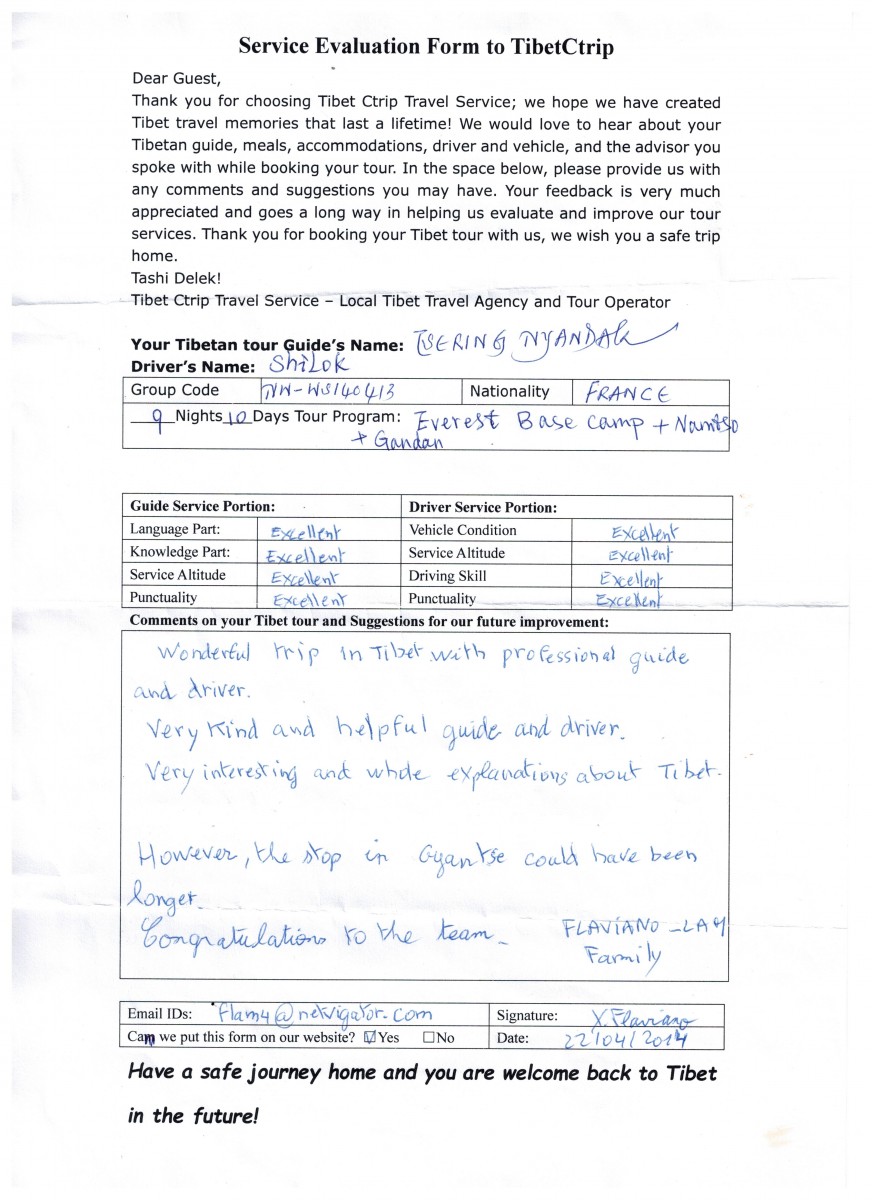 Service Evaluation Form to TibetCtrip
Dear Guest,
Thank you for choosing Tibet Ctrip Travel Service; we hope we have created
Tibet travel memories that last a lifetime! We would love to hear about your
Tibetan guide, meals, accommodations, driver and vehicle, and the advisor you
spoke with while booking your tour. In the space below, please provide us with
any comments and suggestions you may have. Your feedback is very much
appreciated and goes a long way in helping us evaluate and improve our tour
services. Thank you for booking your Tibet tour with us, we wish you a safe trip
home.
Tashi Delek!
Tibet Ctrip Travel Service – Local Tibet Travel Agency and Tour Operator
Your Tibetan tour Guide's Name: TSERING NYANDAK
Driver's Name: ShiLOK
Group Code NW-WS140413 Nationality FRANCE
9 Nights 10 Days Tour Program: Everest Base Camp + Namtso
+ Gandan
Guide Service Portion: Driver Service Portion:
Language Part: Excellent Vehicle Condition Excellent
Knowledge Part: Excellent Service Altitude Excellent
Service Altitude Excellent Driving Skill Excellent
Punctuality Excellent Punctuality Excellent
Comments on your Tibet tour and Suggestions for our future improvement:
Wonderful trip in Tibet with professional guide
and driver.
Very kind and helpful guide and driver.
Very interesting and whole explanations about Tibet.
However, the stop in Gyantse could have been
longer.
Congratulations to the team. FLAVIANO-LAM
Family
Email IDs: flam4@netvigator.com Signature: X.Flaviano
Can we put this form on our website? ☑Yes ☐No Date: 22/04/2014
Have a safe journey home and you are welcome back to Tibet
in the future!